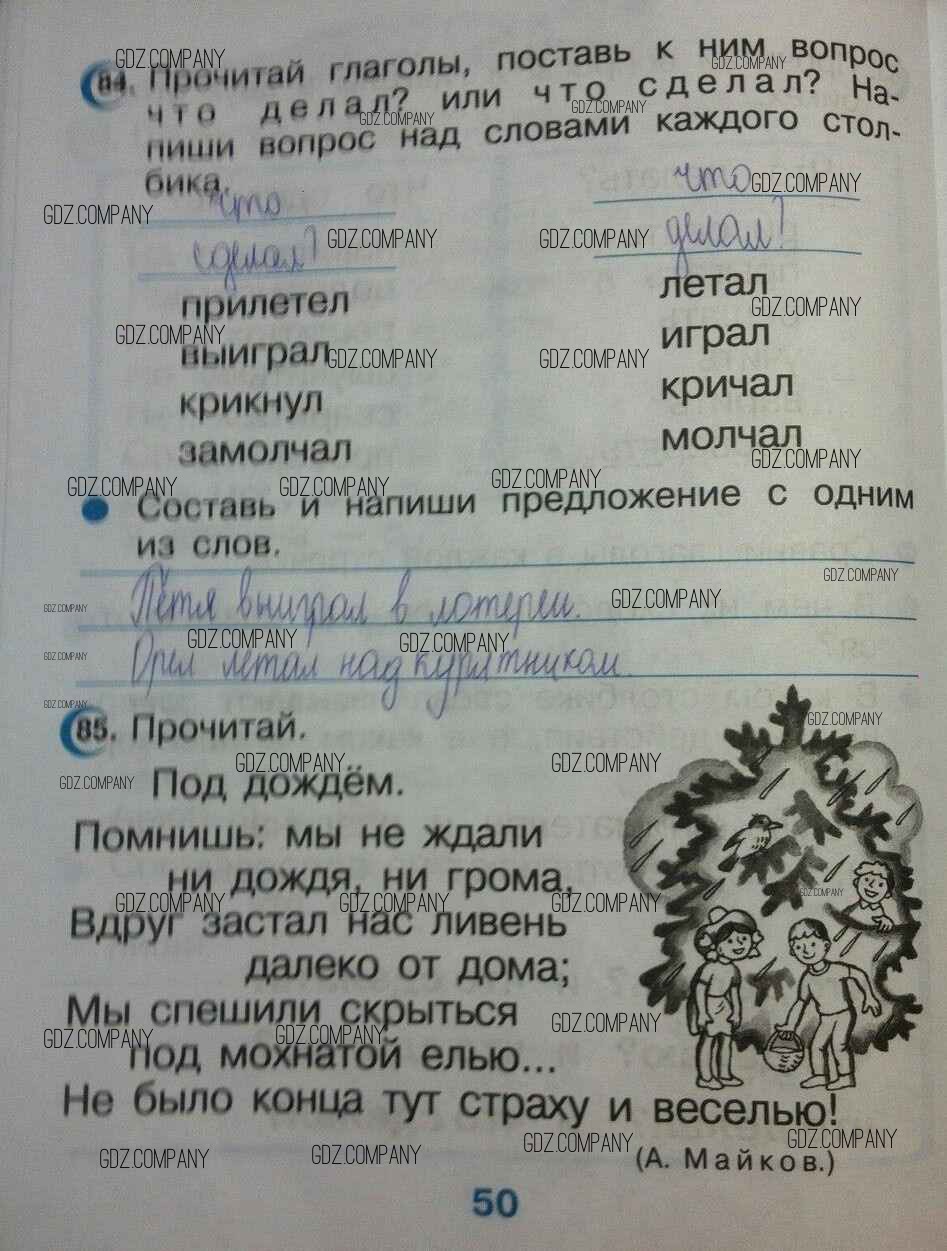 84. Прочитай глаголы, поставь к ним вопрос
что делал? или что сделал? На-
пиши вопрос над словами каждого стол-
бика.
что
сделал?
прилетел
выиграл
крикнул
замолчал
что
делал?
летал
играл
кричал
молчал
Составь и напиши предложение с одним
из слов.
Петя выиграл в лотереи.
Орел летал над курятником.
85. Прочитай.
Под дождём.
Помнишь: мы не ждали
ни дождя, ни грома,
Вдруг застал нас ливень
далеко от дома;
Мы спешили скрыться
под мохнатой елью...
Не было конца тут страху и веселью!
(А. Майков.)
50
GDZ.COMPANY